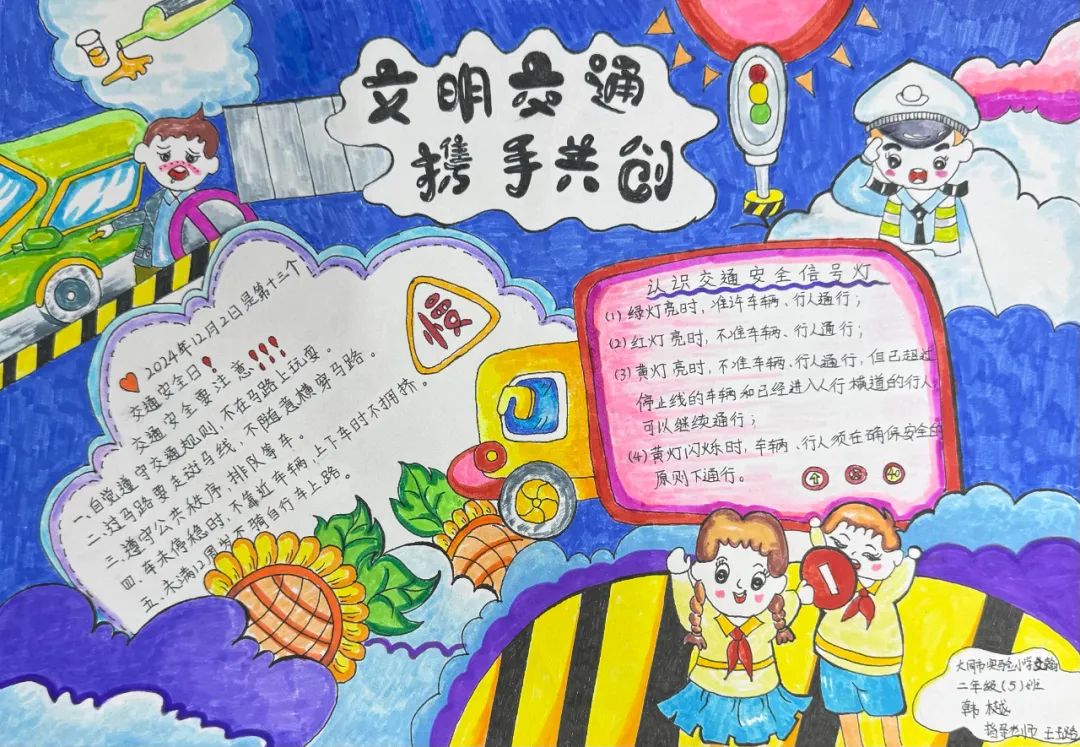 文明交通
携手共创
2024年12月2日是第十三个
交通安全日!
交通安全要注意!!!
一.自觉遵守交通规则,不在马路上玩耍。
二.过马路要走斑马线,不随意横穿马路。
三.遵守公共秩序,排队等车。
四.车未停稳时,不靠近车辆,上下车时不拥挤。
五.未满12周岁不骑自行车上路。
慢
认识交通安全信号灯
(1)绿灯亮时,准许车辆、行人通行;
(2)红灯亮时,不准车辆、行人通行;
(3)黄灯亮时,不准车辆、行人通行,但已超过
停止线的车辆和已经进入人行横道的行人,
可以继续通行;
(4)黄灯闪烁时,车辆、行人须在确保安全的
原则下通行。
大同市实验小学
二年级(5)班
韩樾
指导老师 王